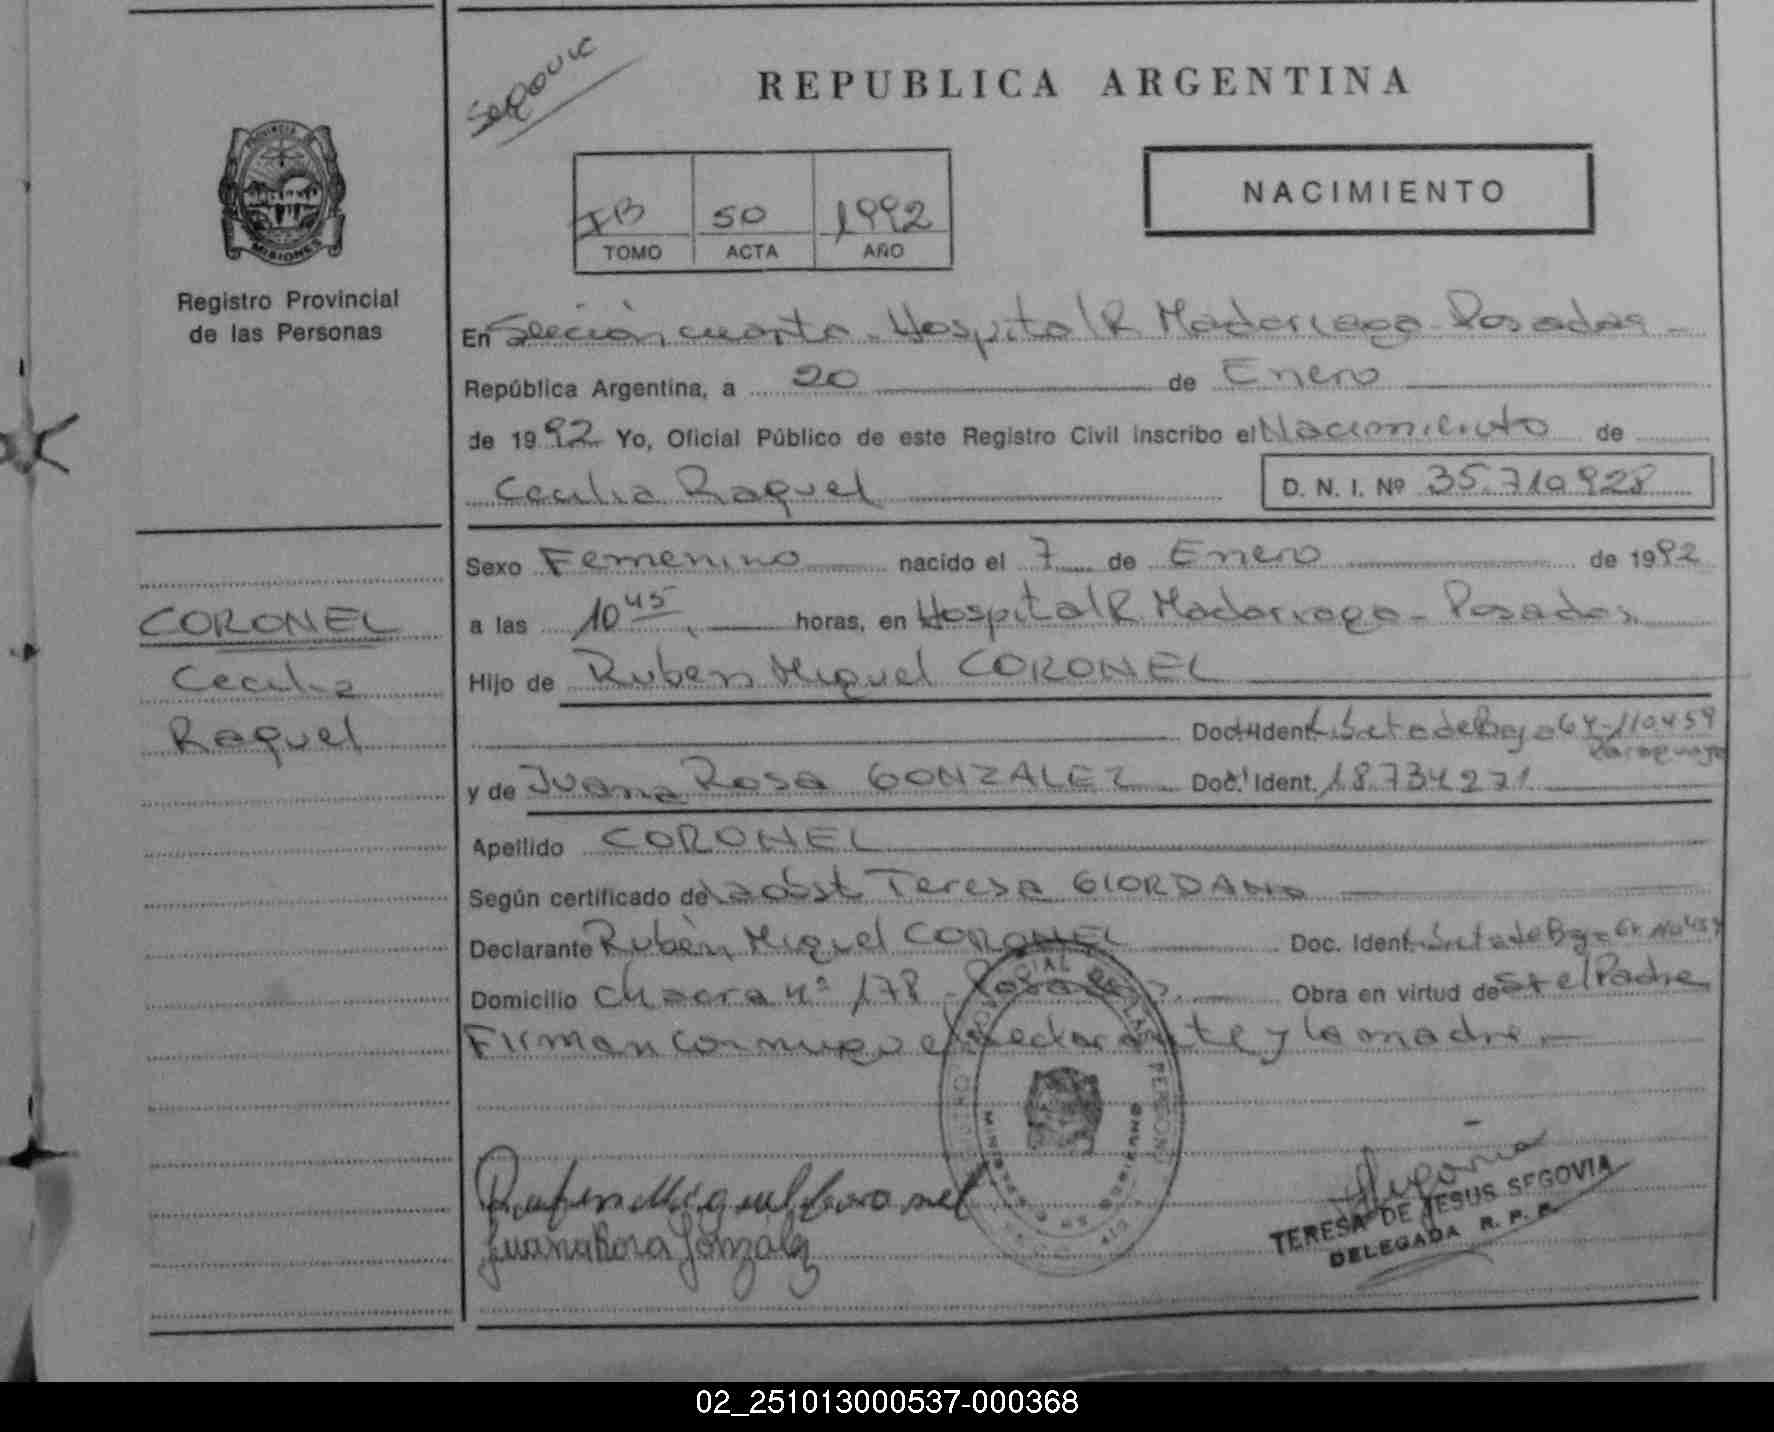 Segovia
REPUBLICA ARGENTINA
PROVINCIA DE
MISIONES
Registro Provincial
de las Personas
IB 50 1992
TOMO ACTA AÑO
NACIMIENTO
En Sección cuarta - Hospital R Madariaga - Posadas -
República Argentina, a 20 de Enero
de 1992 Yo, Oficial Público de este Registro Civil inscribo el Nacimiento de
Cecilia Raquel D. N. I. Nº 35.710928
Sexo Femenino nacido el 7 de Enero de 1992
CORONEL
Cecilia
Raquel
a las 10 45 horas, en Hospital R Madariaga - Posadas
Hijo de Ruben Miguel CORONEL
Doc. Ident. Libreta de Baja 64-110459
Paraguaya
y de Juana Rosa GONZALEZ Doc. Ident. 18.734271
Apellido CORONEL
Según certificado de la obst Teresa GIORDANO
Declarante Rubén Miguel CORONEL Doc. Ident. Libreta de Baja
Domicilio Chacra nº 178 - Posadas Obra en virtud de Ser el Padre
Firman conmigo el declarante y la madre -
Ruben Miguel Coronel
Juana Rosa Gonzalez
Segovia
TERESA DE JESUS SEGOVIA
DELEGADA R. P. P.
02_251013000537-000368